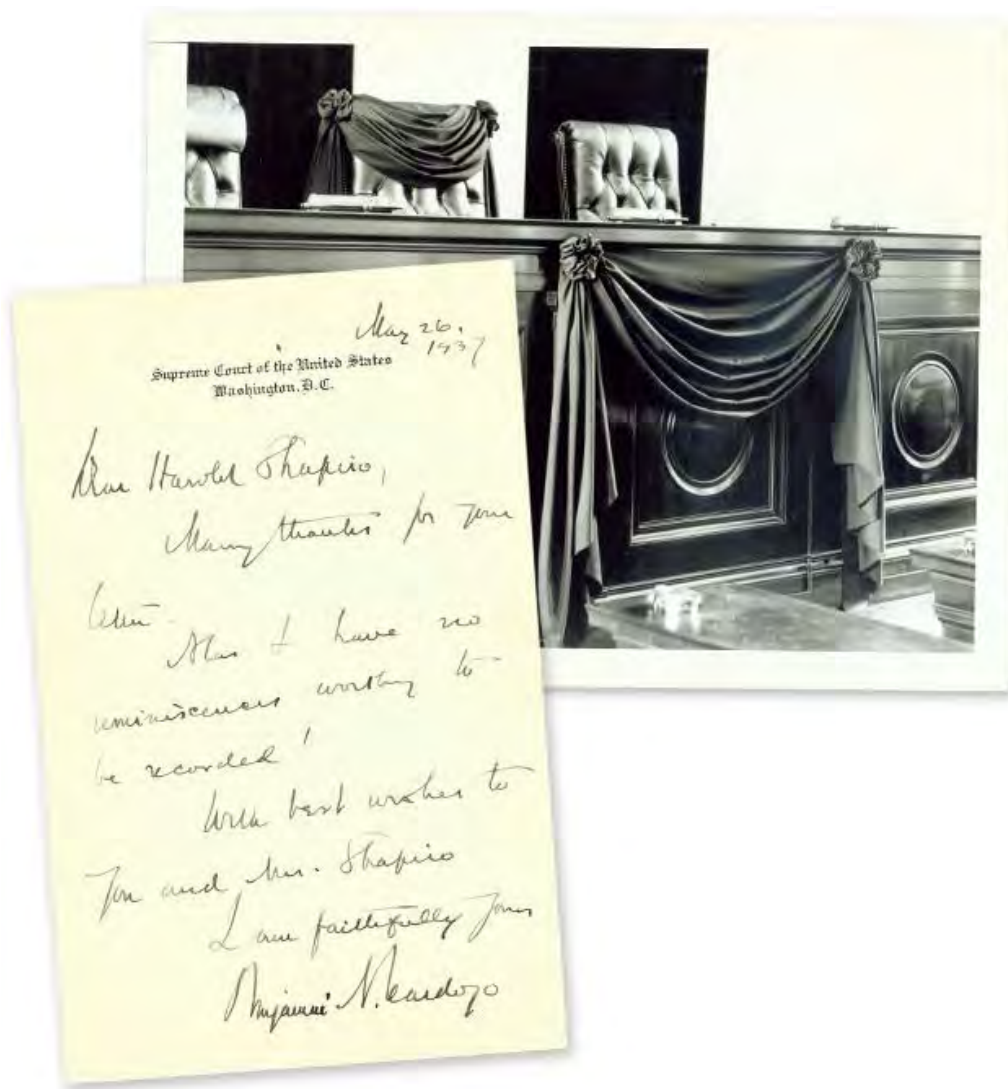 May 26,
1937
Supreme Court of the United States
Washington, D.C.
Dear Harold Shapiro,
Many thanks for your
letter.
Alas I have no
reminiscences worthy to
be recorded!
With best wishes to
you and Mrs. Shapiro
I am faithfully yours
Benjamin N. Cardozo